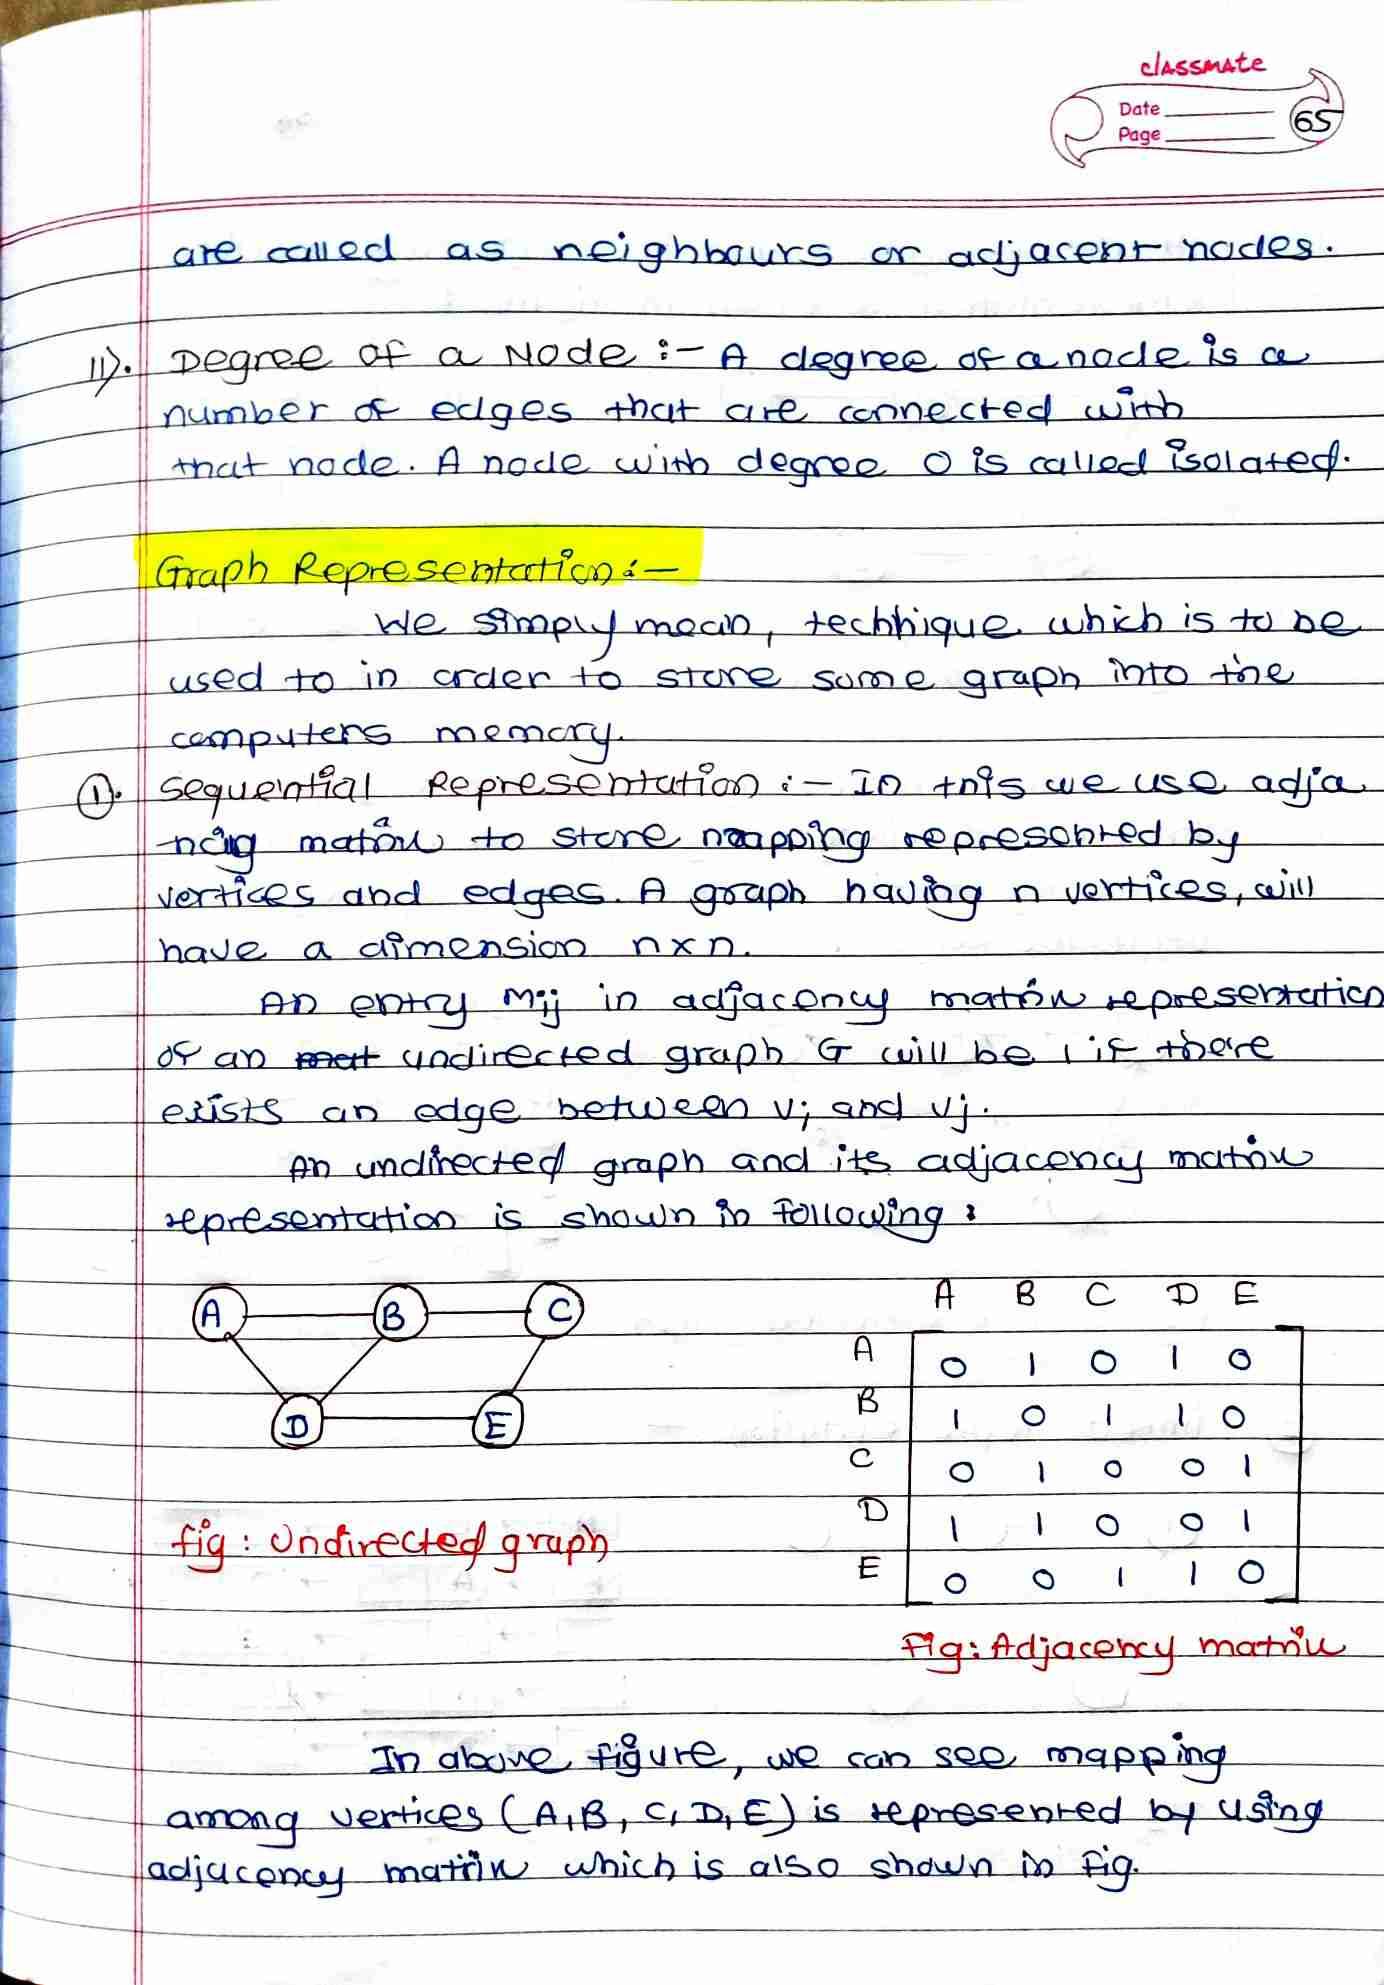 classmate
Date
Page
65
are called as neighbours or adjacent nodes.
11). Degree of a Node :- A degree of a node is a
number of edges that are connected with
that node. A node with degree 0 is called isolated.
Graph Representation :-
We simply mean, technique which is to be
used to in order to store some graph into the
computers memory.
1. Sequential Representation :- In this we use adja
-ncig matrix to store mapping represented by
vertices and edges. A graph having n vertices, will
have a dimension n×n.
An entry Mij in adjacency matrix representation
of an undirected graph G will be 1 if there
exists an edge between vi and vj.
An undirected graph and its adjacency matrix
representation is shown in following :
A B C
D E
fig : Undirected graph
A B C D E
A 0 1 0 1 0
B 1 0 1 1 0
C 0 1 0 0 1
D 1 1 0 0 1
E 0 0 1 1 0
Fig: Adjacency matrix
In above figure, we can see mapping
among vertices (A, B, C, D, E) is represented by using
adjacency matrix which is also shown in fig.